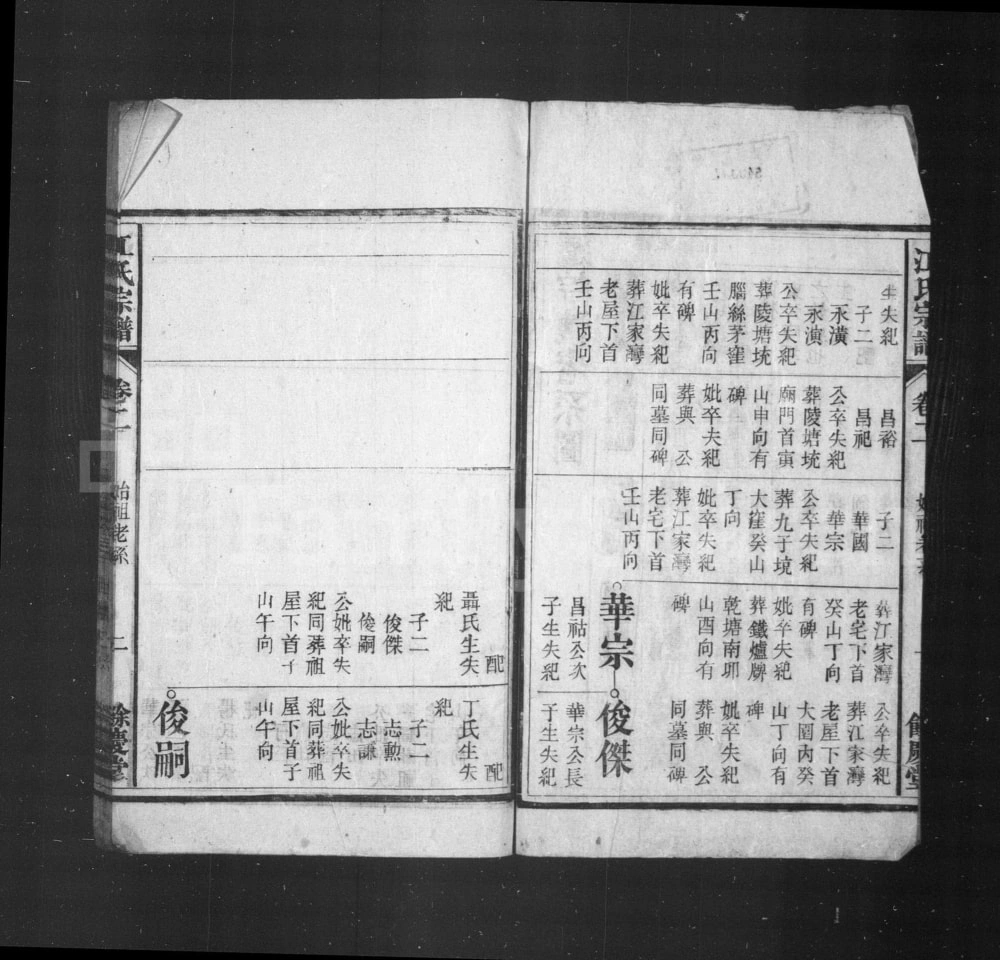 江氏宗譜
卷二
生失紀
子二
永潢
永演
公卒失紀
葬陵塘垸
腦絲茅窪
壬山丙向
有碑
妣卒失紀
葬江家灣
老屋下首
壬山丙向
昌裕
昌祀
公卒失紀
葬陵塘垸
廟門首寅
山申向有
碑
妣卒失紀
葬與公
同墓同碑
子二
華國
華宗
公卒失紀
葬九子境
大窪癸山
丁向
妣卒失紀
葬江家灣
老宅下首
壬山丙向
葬江家灣
老宅下首
癸山丁向
有碑
妣卒失紀
葬鐵爐牌
乾塘南卯
山酉向有
碑
華宗
昌祜公次
子生失紀
公卒失紀
葬江家灣
老屋下首
大圍內癸
山丁向有
碑
妣卒失紀
葬與公
同墓同碑
俊傑
華宗公長
子生失紀
配
聶氏生失
紀
子二
俊傑
俊嗣
公妣卒失
紀同葬祖
屋下首子
山午向
配
丁氏生失
紀
子二
志勲
志謙
公妣卒失
紀同葬祖
屋下首子
山午向
俊嗣
江氏宗譜
卷二
始祖老系
二
餘慶堂